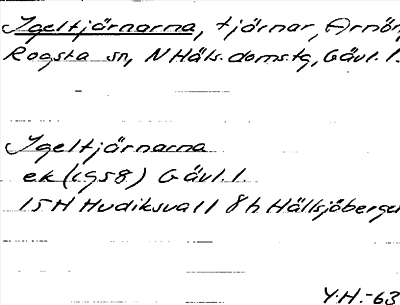 Igeltjärnarna, tjärnar, Arnön,
Rogsta sn, N Häls. doms.tg, Gävl. l.
Igeltjärnarna
ek (1958) Gävl. l.
15H Hudiksvall 8h Hällsjöberget
Y.H.-63